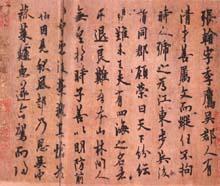 張翰字季鷹吳郡人有
清才善屬文而縱任不拘
時人號之為江東步兵後
謂同郡顧榮曰天下紛紜
禍難未已夫有四海之名者
求退良難吾本山林間人
無望於時子善以明防前
以智慮後榮執其愴然
翰因見秋風起乃思吳中
菰菜鱸魚遂命駕而